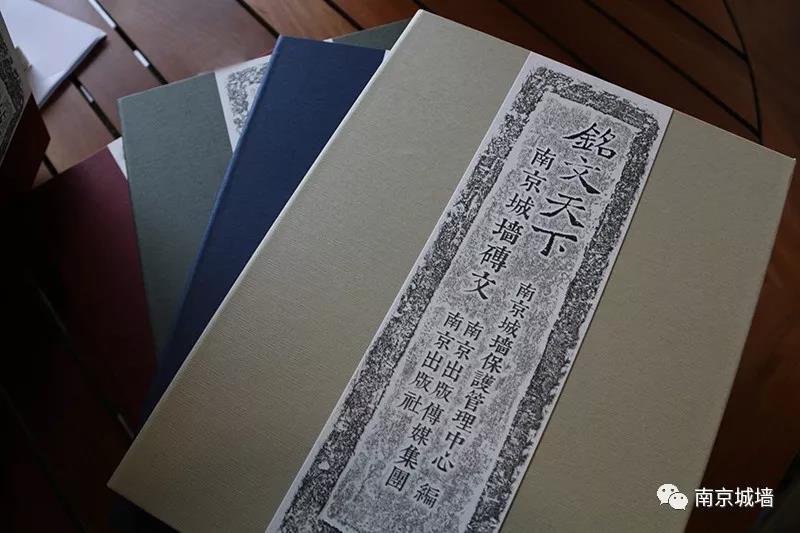 銘文天下
南京城墻磚文
南京城墻保護管理中心 編
南京出版傳媒集團
南京出版社
南京城墙